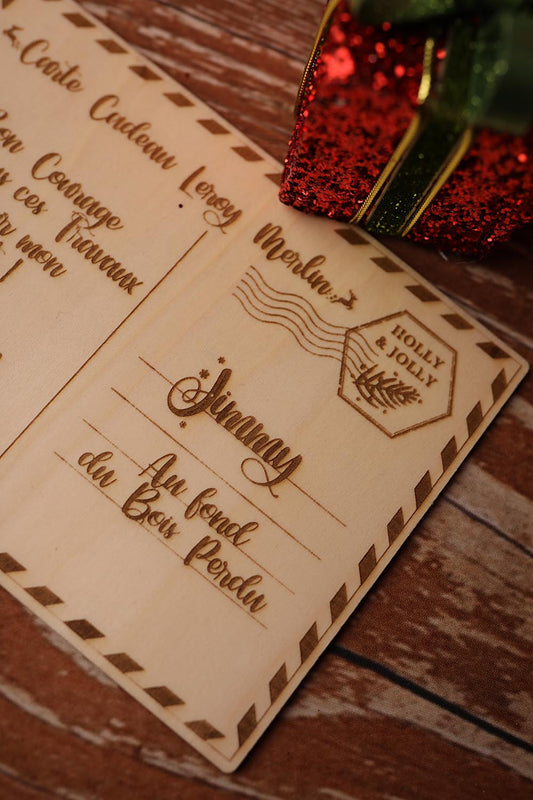 Carte Cadeau Leroy Merlin
on Courage
s ces Travaux
r mon
HOLLY
& JOLLY
Jimmy
Au fond
du Bois Perdu